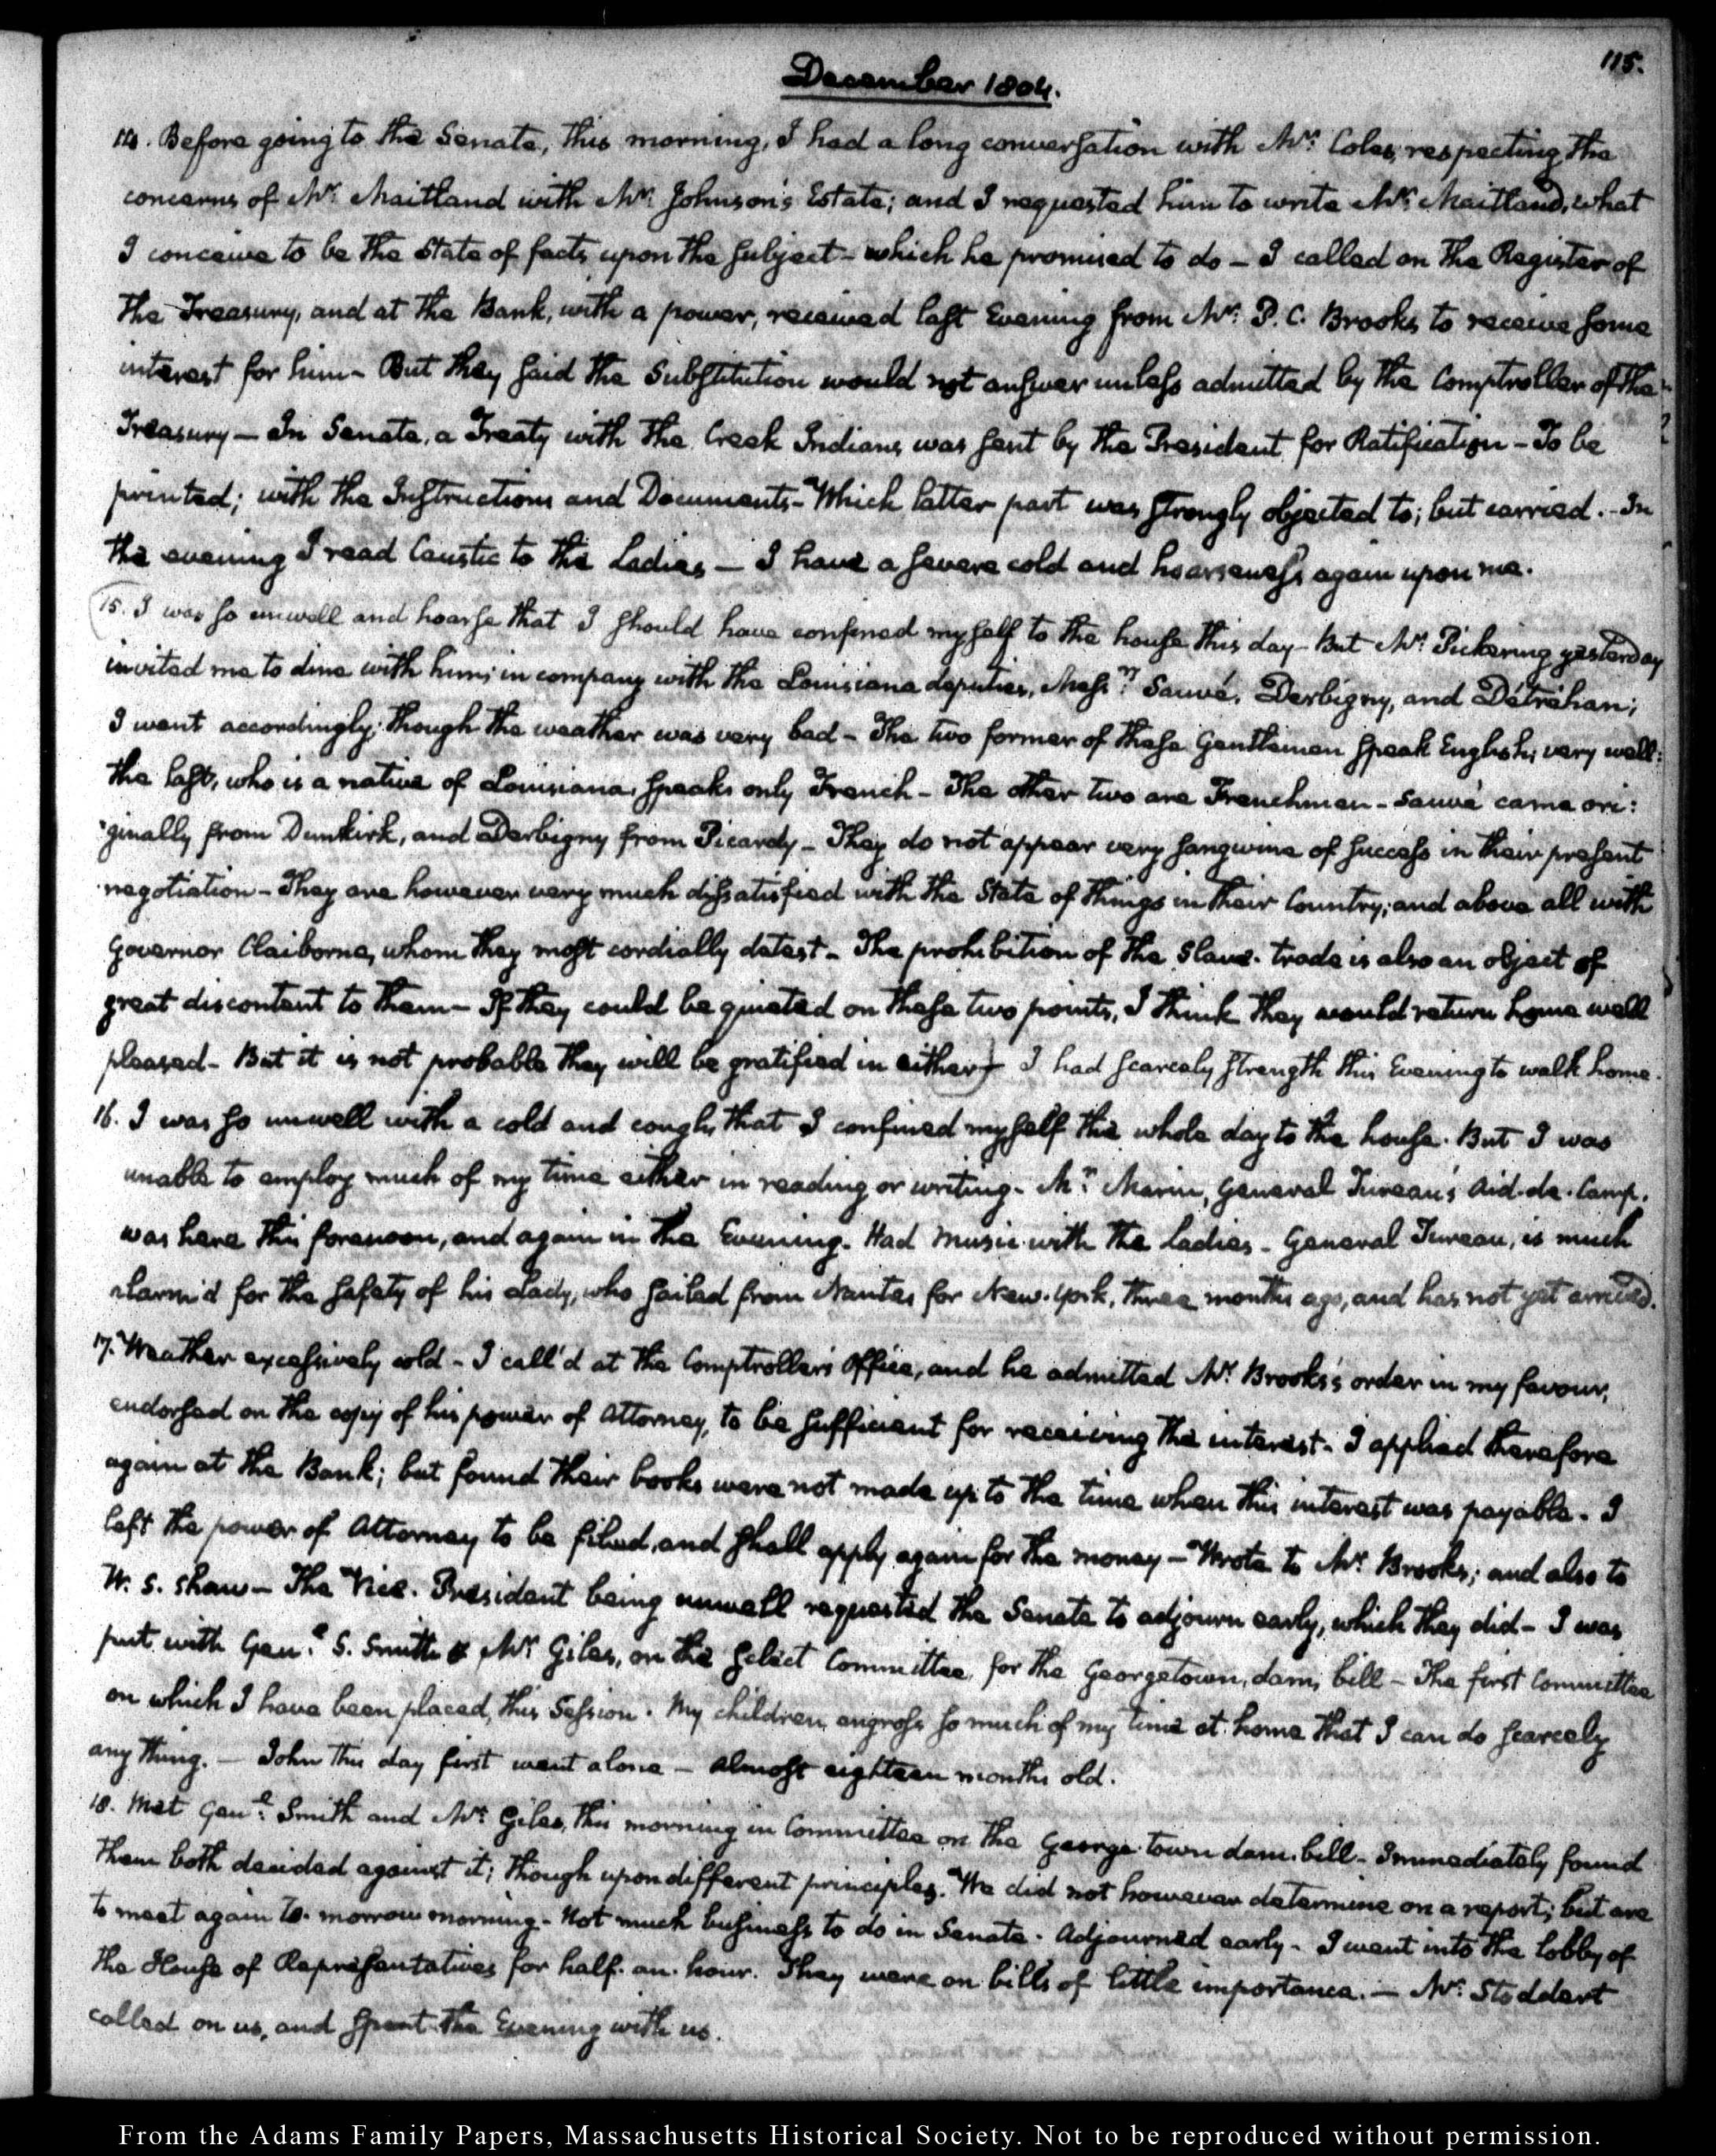 115.
December 1804.
14. Before going to the Senate, this morning, I had a long conversation with Mr. Coles, respecting the
concerns of Mr. Maitland with Mr. Johnson's Estate; and I requested him to write Mr. Maitland, what
I conceive to be the state of facts upon the subject - which he promised to do - I called on the Register of
the Treasury, and at the Bank, with a power, received last Evening from Mr. P. C. Brooks to receive some
interest for him - But they said the Substitution would not answer unless admitted by the Comptroller of the
Treasury - In Senate, a Treaty with the Creek Indians was sent by the President for Ratification - To be
printed; with the Instructions and Documents - Which latter part was strongly objected to; but carried. - In
the evening I read Caustic to the Ladies - I have a severe cold and hoarseness again upon me.
15. I was so unwell and hoarse that I should have confined myself to the house this day - But Mr. Pickering yesterday
invited me to dine with him; in company with the Louisiana deputies, Messrs. Sauvé, Derbigny, and Détréhan;
I went accordingly; though the weather was very bad - The two former of these Gentlemen speak English, very well:
the last, who is a native of Louisiana, speaks only French - The other two are Frenchmen - Sauvé came ori:
ginally from Dunkirk, and Derbigny from Picardy - They do not appear very sanguine of success in their present
negotiation - They are however very much dissatisfied with the State of things in their Country; and above all with
Governor Claiborne, whom they most cordially detest - The prohibition of the Slave-trade is also an object of
great discontent to them - If they could be quieted on these two points, I think they would return home well
pleased - But it is not probable they will be gratified in either - I had scarcely strength this Evening to walk home.
16. I was so unwell with a cold and cough, that I confined myself the whole day to the house. But I was
unable to employ much of my time either in reading or writing - Mr. Marin, General Tureau's Aid-de-Camp.
was here this forenoon, and again in the Evening. Had music with the Ladies - General Tureau, is much
alarm'd for the safety of his Lady, who sailed from Nantes for New-York, three months ago, and has not yet arrived.
17. Weather excessively cold - I call'd at the Comptroller's Office, and he admitted Mr. Brooks's order in my favour,
endorsed on the copy of his power of Attorney, to be sufficient for receiving the interest - I applied therefore
again at the Bank; but found their books were not made up to the time when this interest was payable - I
left the power of Attorney to be filed, and shall apply again for the money - Wrote to Mr. Brooks; and also to
W. S. Shaw - The Vice-President being unwell requested the Senate to adjourn early, which they did - I was
put with Genl. S. Smith & Mr. Giles, on the select Committee, for the Georgetown, dam, bill - The first Committee
on which I have been placed, this Session. My children engross so much of my time at home that I can do scarcely
any thing. - John this day first went alone - almost eighteen months old.
18. Met Genl. Smith and Mr. Giles, this morning in Committee on the George-town dam bill - Immediately found
them both decided against it; though upon different principles. We did not however determine on a report; but are
to meet again to-morrow morning - Not much business to do in Senate. Adjourned early - I went into the lobby of
the House of Representatives for half-an-hour. They were on bills of little importance. - Mr. Stoddert
called on us, and spent the Evening with us.
From the Adams Family Papers, Massachusetts Historical Society. Not to be reproduced without permission.